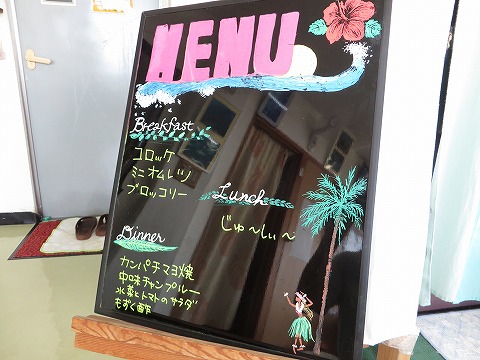 MENU
Breakfast
コロッケ
ミニオムレツ
ブロッコリー
Lunch
じゅ〜しぃ〜
Dinner
カンパチマヨ焼
中味チャンプルー
水菜とトマトのサラダ
もずく酢